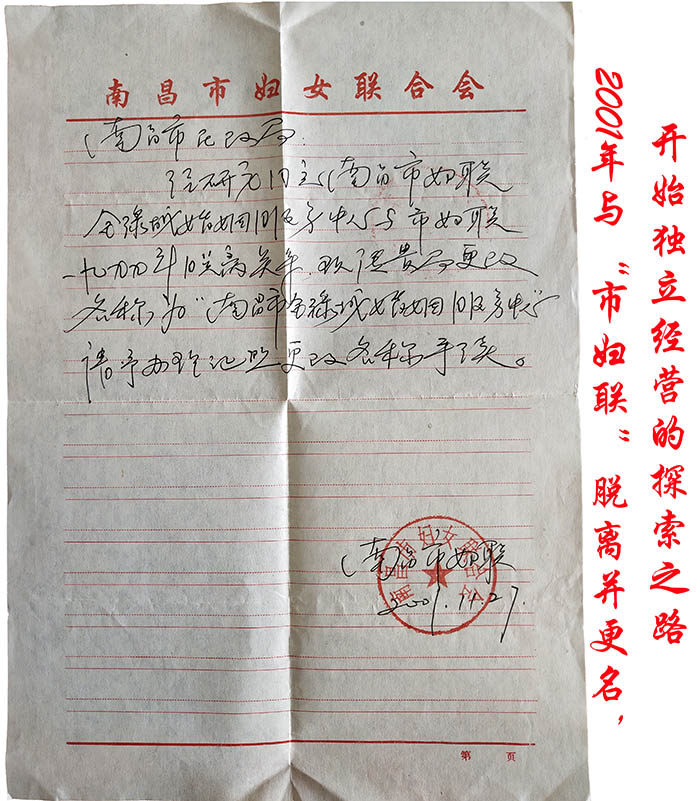 南昌市妇女联合会
南昌市民政局:
经研究同意南昌市妇联
金绿城婚姻服务中心与市妇联
一九九九年脱离关系,现请贵局更改
名称为“南昌市金绿城婚姻服务中心”
请予办理证照更改名称手续。
南昌市妇联
2001.
南昌市妇女联合会
第 页
2001年与“市妇联”脱离并更名,
开始独立经营的探索之路